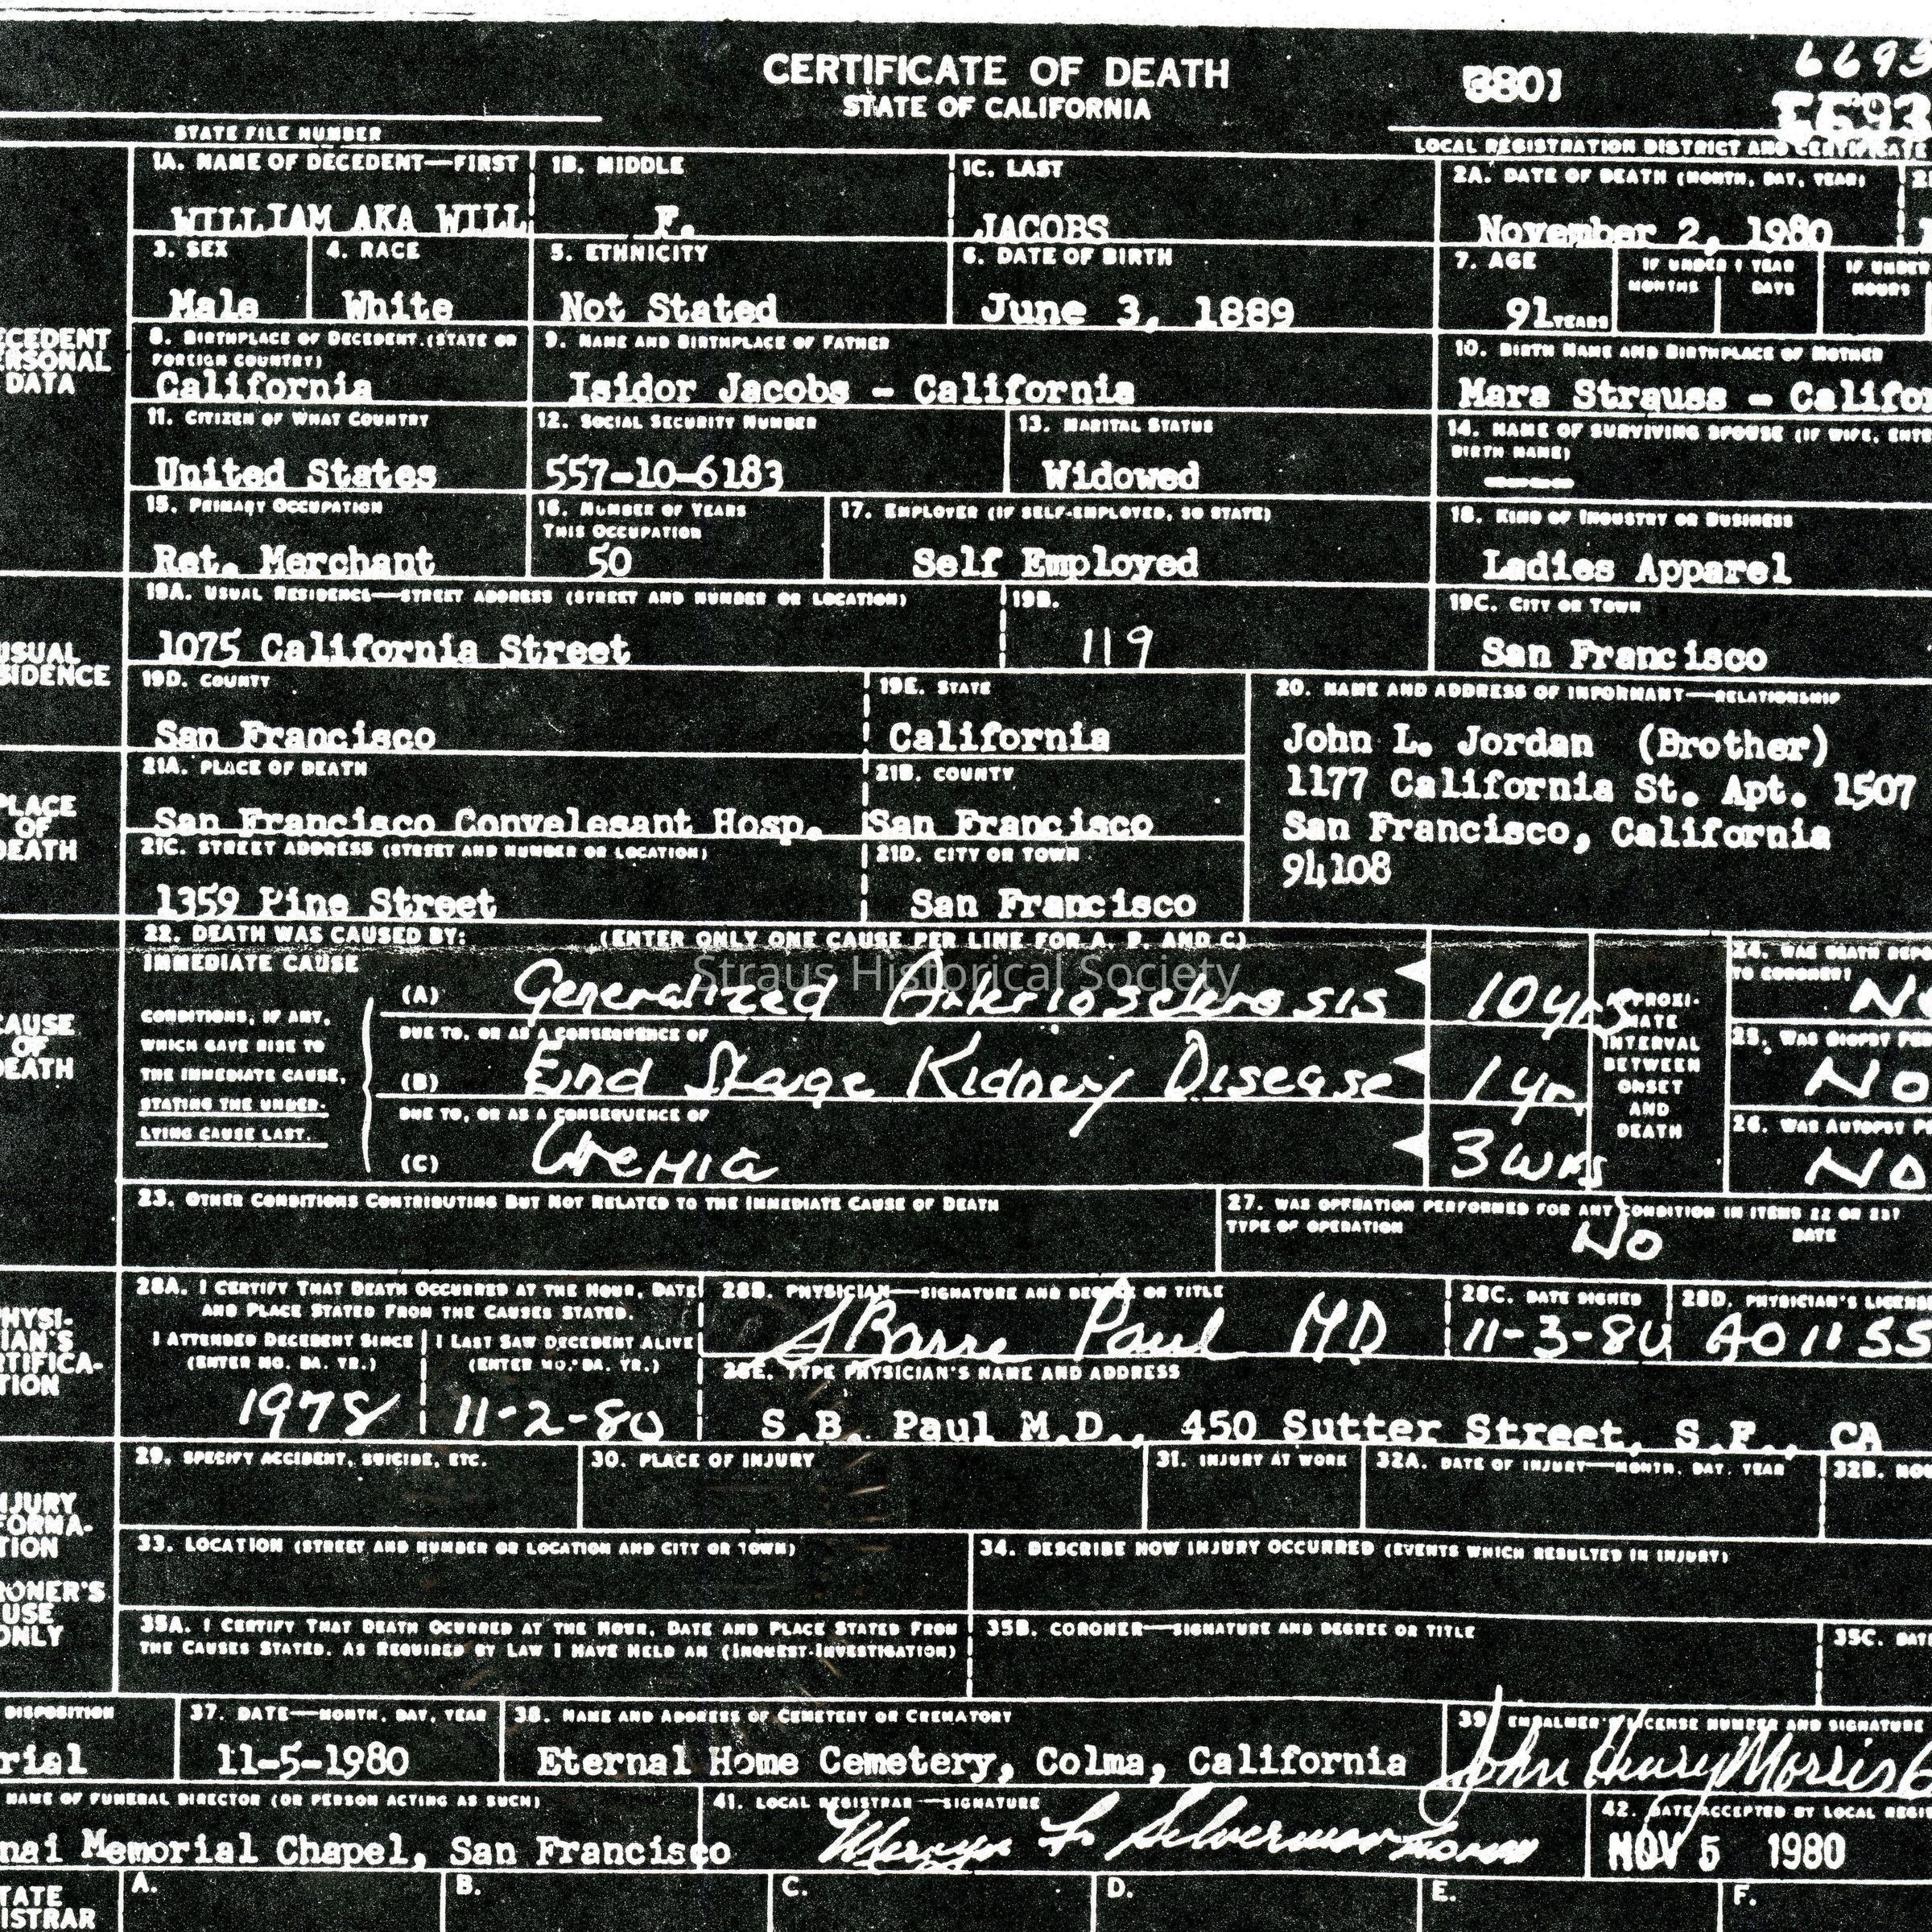 CERTIFICATE OF DEATH
STATE OF CALIFORNIA
3801
6693
STATE FILE NUMBER
LOCAL REGISTRATION DISTRICT AND CERTIFICATE
1A. NAME OF DECEDENT—FIRST
1B. MIDDLE
1C. LAST
2A. DATE OF DEATH (MONTH, DAY, YEAR)
WILLIAM AKA WILL
F.
JACOBS
November 2, 1980
3. SEX
4. RACE
5. ETHNICITY
6. DATE OF BIRTH
7. AGE
IF UNDER 1 YEAR
IF UNDER
MONTHS
DAYS
HOURS
Male
White
Not Stated
June 3, 1889
91 YEARS
ECEDENT
ERSONAL
DATA
8. BIRTHPLACE OF DECEDENT (STATE OR
FOREIGN COUNTRY)
9. NAME AND BIRTHPLACE OF FATHER
10. BIRTH NAME AND BIRTHPLACE OF MOTHER
California
Isidor Jacobs - California
Mara Strauss - Califor
11. CITIZEN OF WHAT COUNTRY
12. SOCIAL SECURITY NUMBER
13. MARITAL STATUS
14. NAME OF SURVIVING SPOUSE (IF WIFE, ENTE
BIRTH NAME)
United States
557-10-6183
Widowed
15. PRIMARY OCCUPATION
16. NUMBER OF YEARS
THIS OCCUPATION
17. EMPLOYER (IF SELF-EMPLOYED, SO STATE)
18. KIND OF INDUSTRY OR BUSINESS
Ret. Merchant
50
Self Employed
Ladies Apparel
USUAL
SIDENCE
19A. USUAL RESIDENCE—STREET ADDRESS (STREET AND NUMBER OR LOCATION)
19B.
19C. CITY OR TOWN
1075 California Street
119
San Francisco
19D. COUNTY
19E. STATE
20. NAME AND ADDRESS OF INFORMANT—RELATIONSHIP
San Francisco
California
John L. Jordan (Brother)
1177 California St. Apt. 1507
San Francisco, California
94108
PLACE
OF
DEATH
21A. PLACE OF DEATH
21B. COUNTY
San Francisco Convelesant Hosp.
San Francisco
21C. STREET ADDRESS (STREET AND NUMBER OR LOCATION)
21D. CITY OR TOWN
1359 Pine Street
San Francisco
CAUSE
OF
DEATH
22. DEATH WAS CAUSED BY: (ENTER ONLY ONE CAUSE PER LINE FOR A, B, AND C)
IMMEDIATE CAUSE
Straus Historical Society
(A) Generalized Arteriosclerosis 10 yrs
CONDITIONS, IF ANY,
WHICH GAVE RISE TO
THE IMMEDIATE CAUSE,
STATING THE UNDER-
LYING CAUSE LAST.
DUE TO, OR AS A CONSEQUENCE OF
(B) End Stage Kidney Disease 1 yr
DUE TO, OR AS A CONSEQUENCE OF
(C) Uremia 3 wks
APPROXI-
MATE
INTERVAL
BETWEEN
ONSET
AND
DEATH
24. WAS DEATH REPO
TO CORONER?
No
25. WAS BIOPSY PE
No
26. WAS AUTOPSY PE
No
23. OTHER CONDITIONS CONTRIBUTING BUT NOT RELATED TO THE IMMEDIATE CAUSE OF DEATH
27. WAS OPERATION PERFORMED FOR ANY CONDITION IN ITEMS 22 OR 23?
TYPE OF OPERATION
DATE
No
PHYSI-
IAN'S
RTIFICA-
TION
28A. I CERTIFY THAT DEATH OCCURRED AT THE HOUR, DATE
AND PLACE STATED FROM THE CAUSES STATED.
I ATTENDED DECEDENT SINCE
(ENTER MO. DA. YR.)
I LAST SAW DECEDENT ALIVE
(ENTER MO. DA. YR.)
1978
11-2-80
28B. PHYSICIAN—SIGNATURE AND DEGREE OR TITLE
28C. DATE SIGNED
28D. PHYSICIAN'S LICENSE
S Barre Paul MD
11-3-80
A01155
28E. TYPE PHYSICIAN'S NAME AND ADDRESS
S.B. Paul M.D., 450 Sutter Street, S.F., CA
NJURY
FORMA-
TION
RONER'S
USE
ONLY
29. SPECIFY ACCIDENT, SUICIDE, ETC.
30. PLACE OF INJURY
31. INJURY AT WORK
32A. DATE OF INJURY—MONTH, DAY, YEAR
32B. HO
33. LOCATION (STREET AND NUMBER OR LOCATION AND CITY OR TOWN)
34. DESCRIBE HOW INJURY OCCURRED (EVENTS WHICH RESULTED IN INJURY)
35A. I CERTIFY THAT DEATH OCURRED AT THE HOUR, DATE AND PLACE STATED FROM
THE CAUSES STATED, AS REQUIRED BY LAW I HAVE HELD AN (INQUEST-INVESTIGATION)
35B. CORONER—SIGNATURE AND DEGREE OR TITLE
35C. DATE
DISPOSITION
37. DATE—MONTH, DAY, YEAR
38. NAME AND ADDRESS OF CEMETERY OR CREMATORY
39. EMBALMER'S LICENSE NUMBER AND SIGNATURE
rial
11-5-1980
Eternal Home Cemetery, Colma, California
John Henry Morris
NAME OF FUNERAL DIRECTOR (OR PERSON ACTING AS SUCH)
41. LOCAL REGISTRAR—SIGNATURE
42. DATE ACCEPTED BY LOCAL REGI
nai Memorial Chapel, San Francisco
Mervyn F. Silverman
NOV 5 1980
TATE
ISTRAR
A.
B.
C.
D.
E.
F.